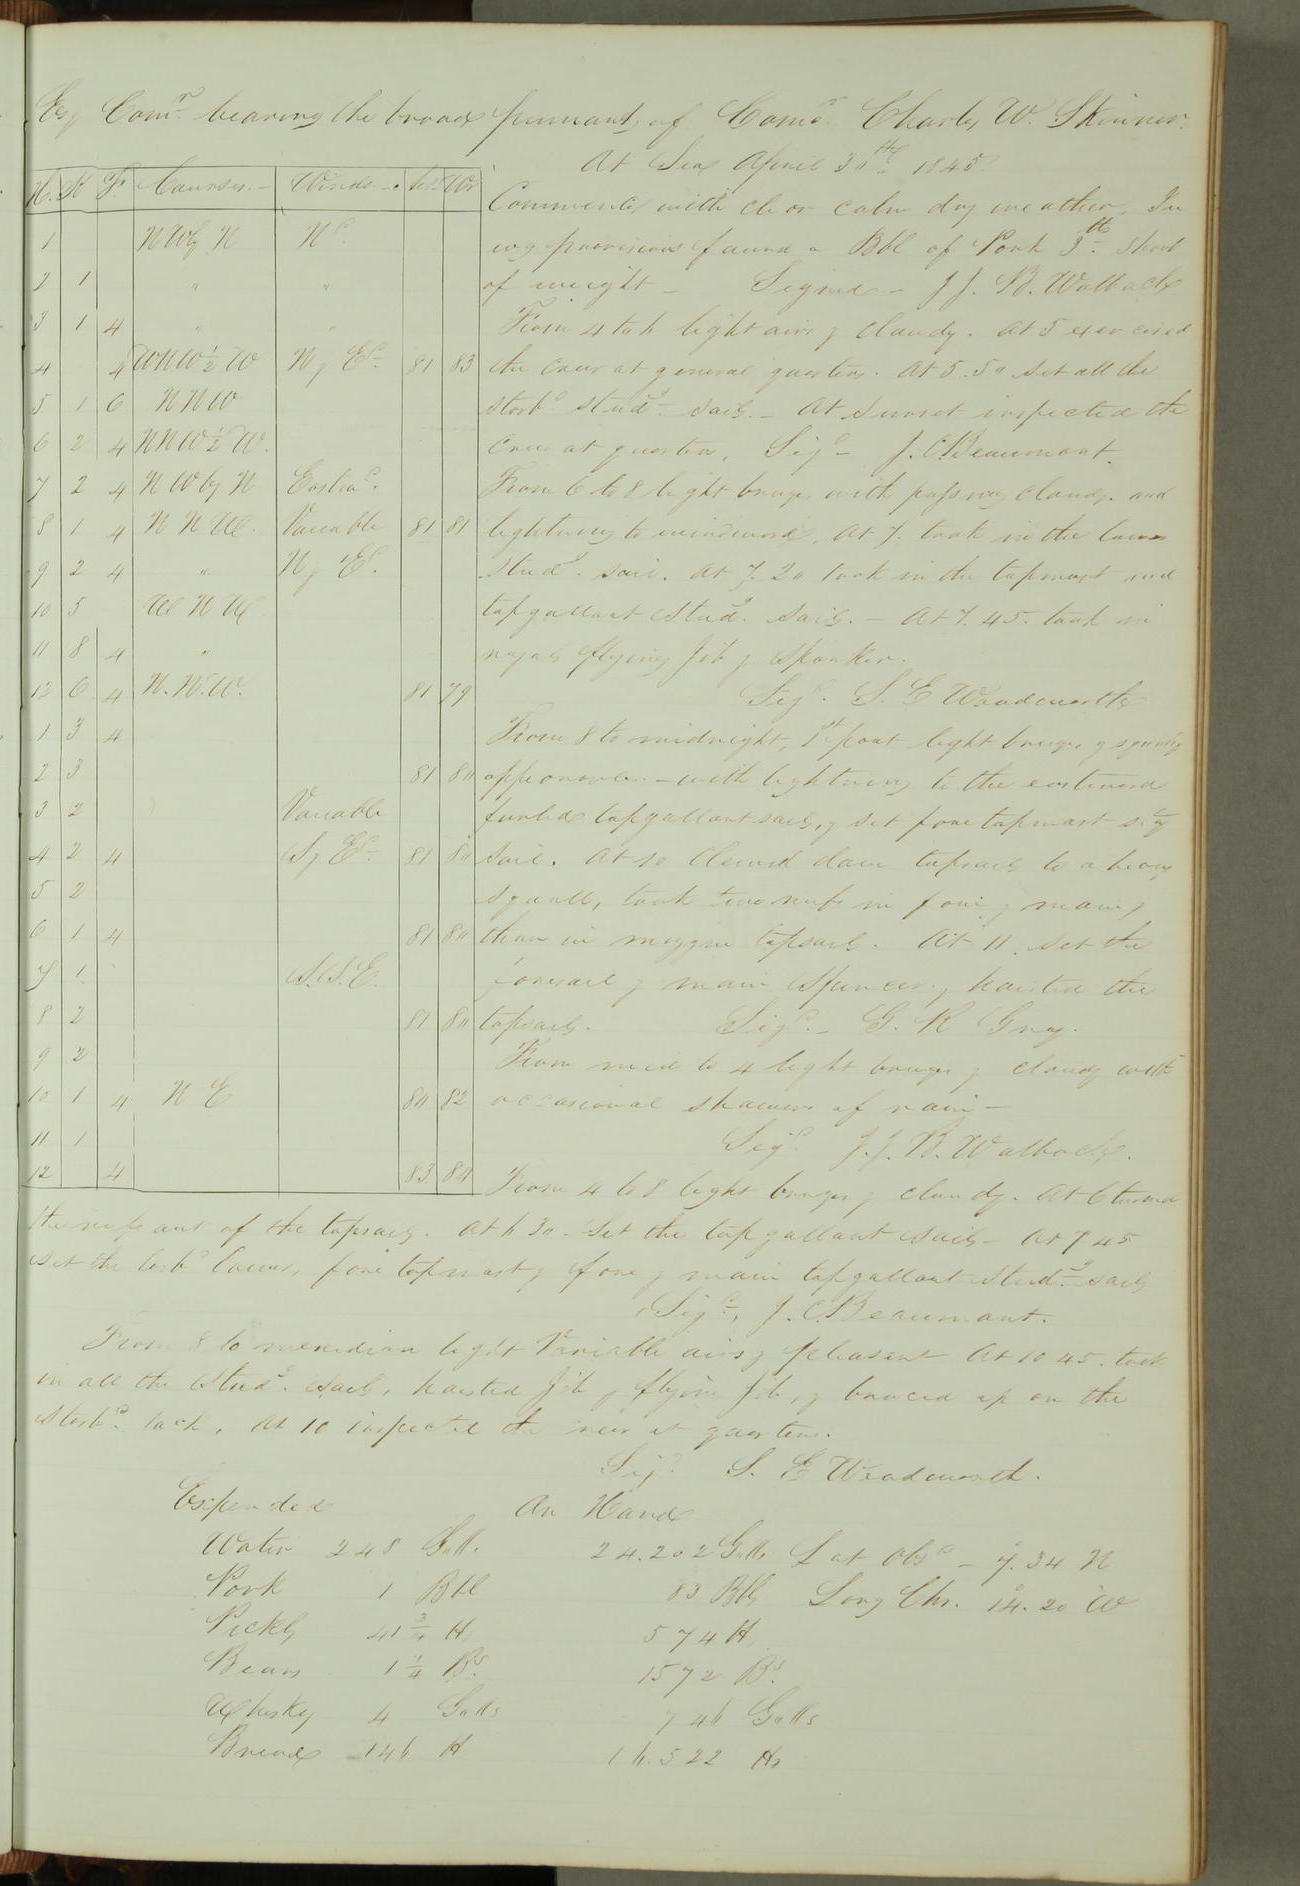 Esq Comr. bearing the broad pennant of Como. Charles W. Skinner.
At Sea April 30th 1845
H. K F. Courses. Winds Air Wr
Commences with clear calm dry weather. In
1 NW by N Nd.
ing provisions found a Bbl of Pork 3 lb short
2 1 " "
of weight Signed J. J. B. Walbach
3 1 4 " "
From 4 to 6 light airs & cloudy. At 5 exercised
4 4 WNW ½ W N & Ed. 81 83
the crew at general quarters. At 5.50 set all the
5 1 6 NNW
starbd. studg. sails. At Sunset inspected the
6 2 4 NNW ½ W.
crew at quarters, Sigd J. C. Beaumont.
7 2 4 NW by N Eastwd.
From 6 to 8 light breezes with passing clouds. and
8 1 4 NNW. Variable 81 81
lightning to windward. At 7. took in the lower
9 2 4 " N & Ed.
studg. sail. At 7.20 took in the topmast and
10 5 WNW
topgallant studg. sails. - At 7.45. took in
11 8 4 "
royals flying Jib & Spanker.
12 6 4 N.N.W. 81 79
Sigd. S. E Woodworth
1 3 4
From 8 to midnight, 1st part light breezes & squally
2 3 81 80
appearance. - with lightning to the eastward
3 2 Variable
furled topgallantsails, & set fore topmast stay
4 2 4 S & Ed. 81 80
sail. At 10 clewed down topsails to a heavy
5 2
squall, took two reefs in fore & main &
6 1 4 81 80
in mizzen topsails. At 11 set the
7 1 S.S.E.
foresail & main Spencer & hoisted the
8 2 81 80
topsails. Sigd. G. R Gray.
9 2
From mid to 4 light breezes & cloudy with
10 1 4 NE 80 82
occasional showers of rain
11 1
Sigd. J. J. B. Walbach.
12 4 83 84
From 4 to 8 light breezes & cloudy. At 6 turned
the reefs out of the topsails. At 6 30. Set the top gallant sails - At 7 45
set the larbd lower, fore topmast & fore & main topgallant studg sails
Sigd., J. C. Beaumont.
From 8 to meridian light Variable airs & pleasant At 10 45. took
in all the Studg. sails, hoisted Jib & flying Jib, & braced up on the
Starbd. tack. At 10 inspected the crew at quarters.
Sigd. S. E Woodworth.
Expended On Hand
Water 248 Galls. 24.202 Galls Lat Obsd - 7.34 N
Pork 1 Bbl 83 Bbls Long Chr. 14.20 W
Pickls 41 ¾ lb 574 lb
Beans 1 ¼ Bs. 1572 Bs.
Whisky 4 Galls 746 Galls
Bread 146 lb 16.522 lbs